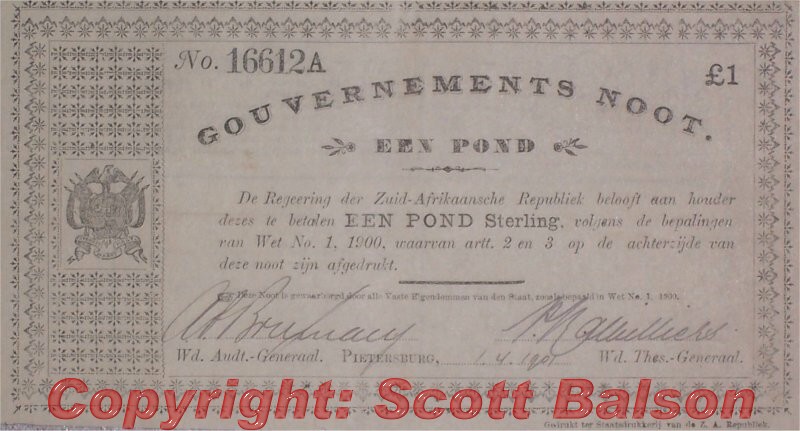 No. 16612A
£1
GOUVERNEMENTS NOOT.
EEN POND
De Regeering der Zuid-Afrikaansche Republiek belooft aan houder
dezes te betalen EEN POND Sterling, volgens de bepalingen
van Wet No. 1, 1900, waarvan artt. 2 en 3 op de achterzijde van
deze noot zijn afgedrukt.
Deze Noot is gewaarborgd door alle Vaste Eigendommen van den Staat, zooals bepaald in Wet No. 1, 1900.
Wd. Audt.-Generaal. PIETERSBURG, 1.4.1901 Wd. Thes.-Generaal.
Copyright: Scott Balson
Gedrukt ter Staatsdrukkerij van de Z. A. Republiek.